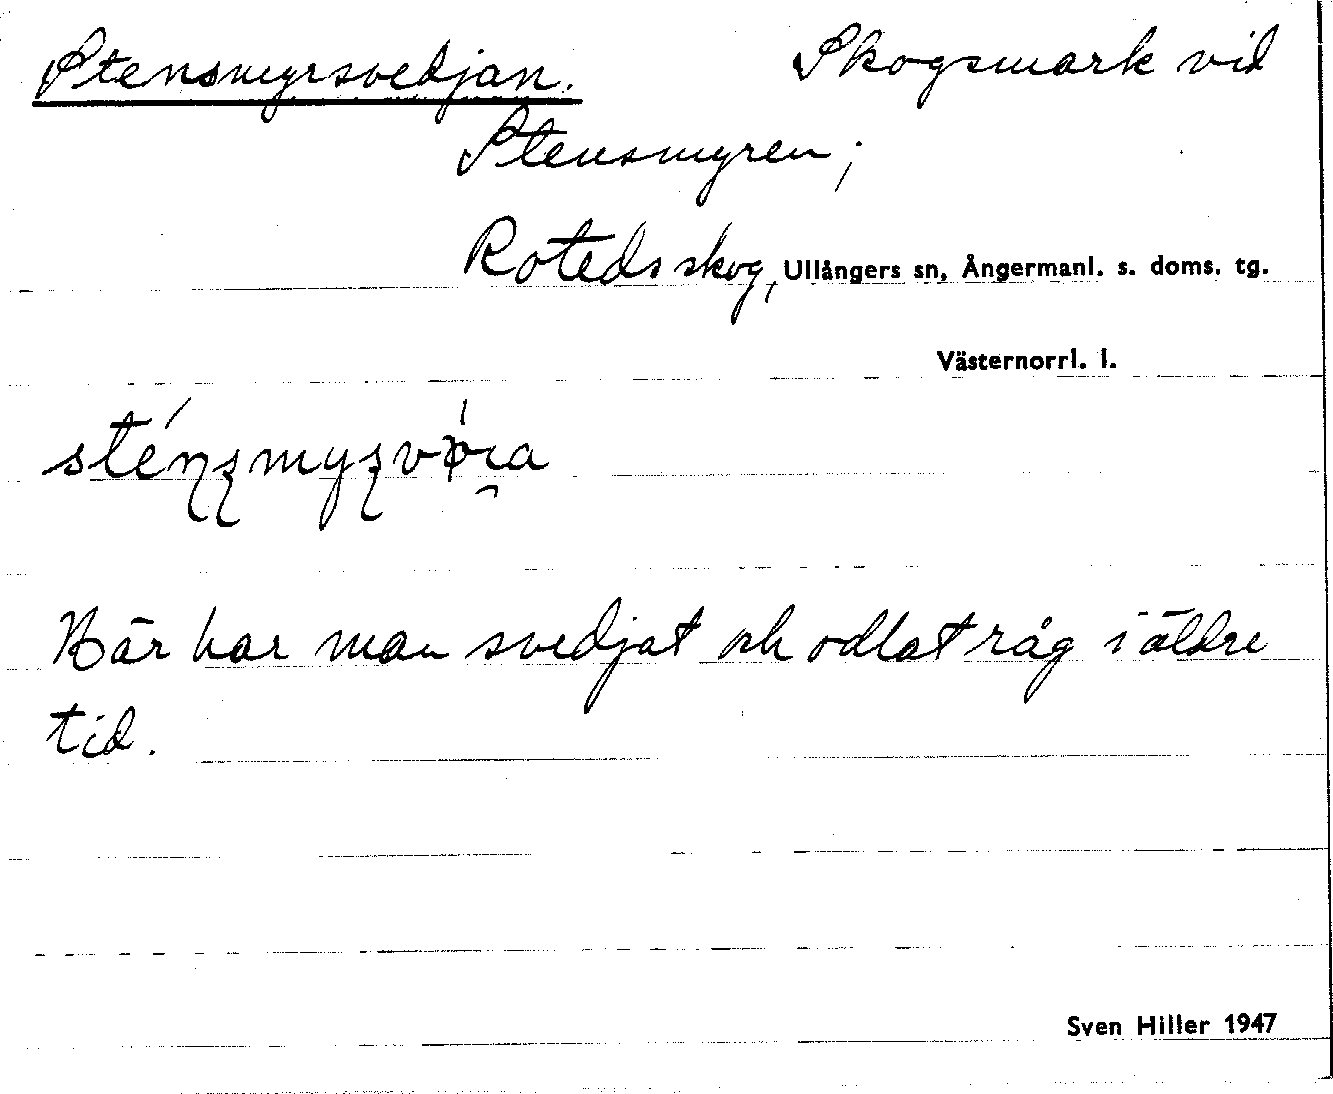 Stensmyrsvedjan. Skogsmark vid
Stensmyren;
Rotedsskog, Ullångers sn, Ångermanl. s. doms. tg.
Västernorrl. l.
Här har man svedjat och odlat råg i äldre
tid.
Sven Hiller 1947